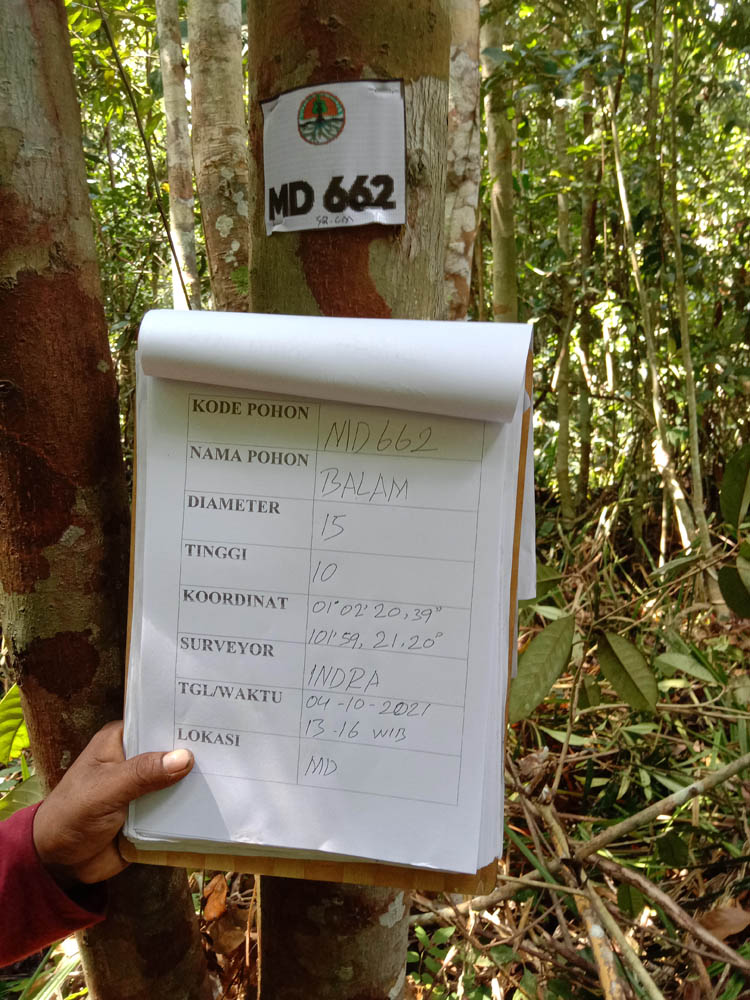 MD 662
KODE POHON MD662
NAMA POHON BALAM
DIAMETER 15
TINGGI 10
KOORDINAT 01° 02' 20,39"
101° 59, 21,20"
SURVEYOR INDRA
TGL/WAKTU 04-10-2021
13-16 WIB
LOKASI MD